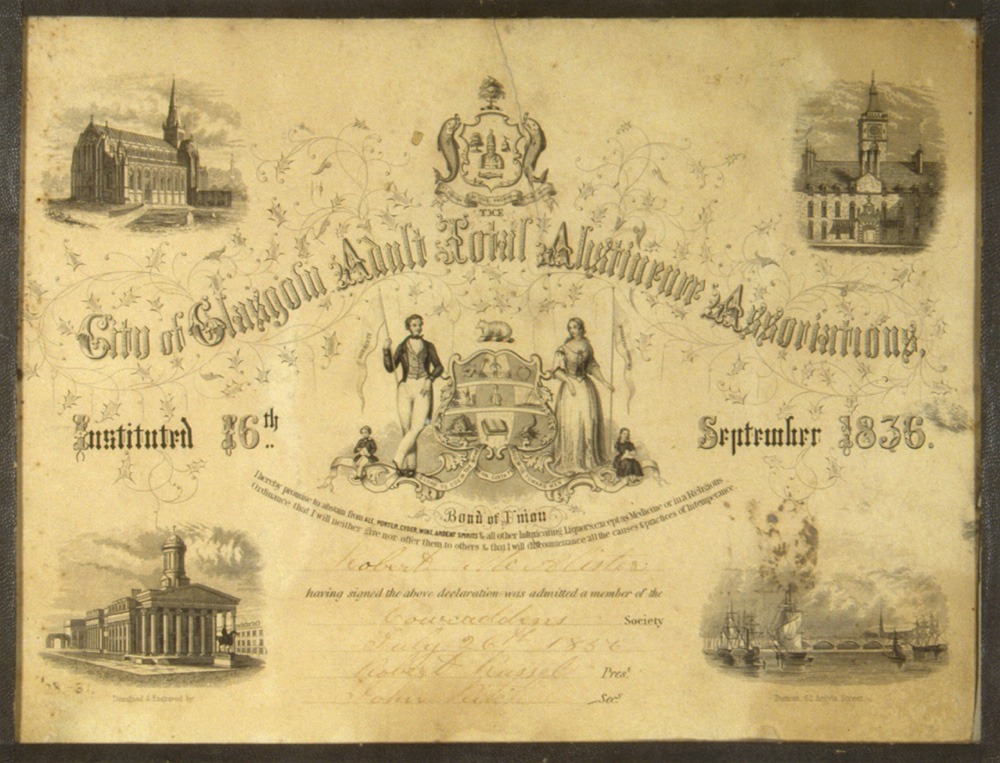 THE
City of Glasgow Adult Total Abstinence Associations,
Instituted 16th September 1836.
Bond of Union
I hereby promise to abstain from ALE, PORTER, CYDER, WINE, ARDENT SPIRITS & all other Intoxicating Liquors, except as Medicine or in a Religious
Ordinance that I will neither give nor offer them to others & that I will discountenance all the causes & practices of Intemperance.
Robert McAlister
having signed the above declaration was admitted a member of the
Cowcaddens Society
July 26th 1856
Robert Russel Prest.
John Secy.
Designed & Engraved by
Duncan, 62 Argyle Street.